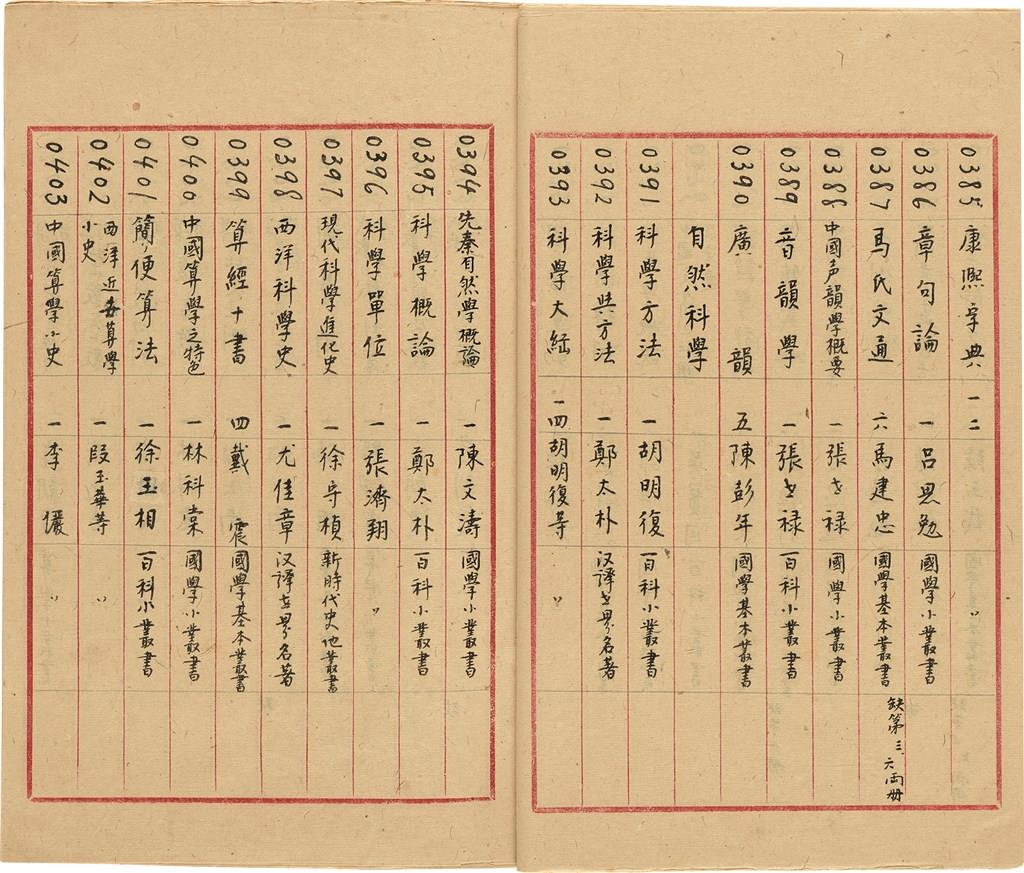 0385 康熙字典 一二 〃
0386 章句論 一 呂思勉 國學小叢書
0387 馬氏文通 六 馬建忠 國學基本叢書 缺第三、六両册
0388 中國声韻學概要 一 張世禄 國學小叢書
0389 音韻學 一 張世禄 百科小叢書
0390 廣韻 五 陳彭年 國學基本叢書
自然科學
0391 科學方法 一 胡明復 百科小叢書
0392 科學與方法 一 鄭太朴 汉譯世界名著
0393 科學大綱 一四 胡明復等 〃
0394 先秦自然學概論 一 陳文濤 國學小叢書
0395 科學概論 一 鄭太朴 百科小叢書
0396 科學單位 一 張濟翔 〃
0397 現代科學進化史 一 徐守楨 新時代史地叢書
0398 西洋科學史 一 尤佳章 汉譯世界名著
0399 算經十書 四 戴震 國學基本叢書
0400 中國算學之特色 一 林科棠 國學小叢書
0401 簡便算法 一 徐玉相 百科小叢書
0402 西洋近世算學小史 一 段玉華等 〃
0403 中國算學小史 一 李儼 〃